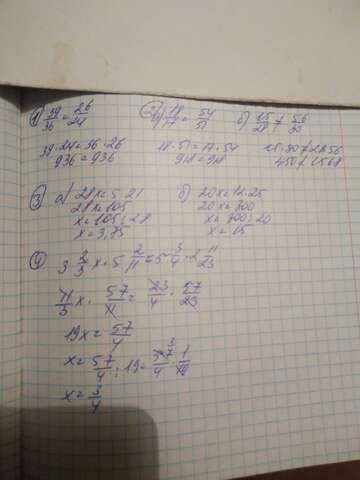 1) 39/36 = 26/24
39·24=36·26
936=936
2) а) 18/17 = 54/51
18·51=17·54
918=918
б) 15/28 ≠ 56/30
15·30≠28·56
450≠1568
3) а) 28x=5·21
28x=105
x=105:28
x=3,75
б) 20x=12·25
20x=300
x=300:20
x=15
4) 3 2/3 x · 5 2/11 = 5 3/4 · 2 11/23
11/3 x · 57/11 = 23/4 · 57/23
19x = 57/4
x = 57/4 : 19 = 57/4 · 1/19
x = 3/4